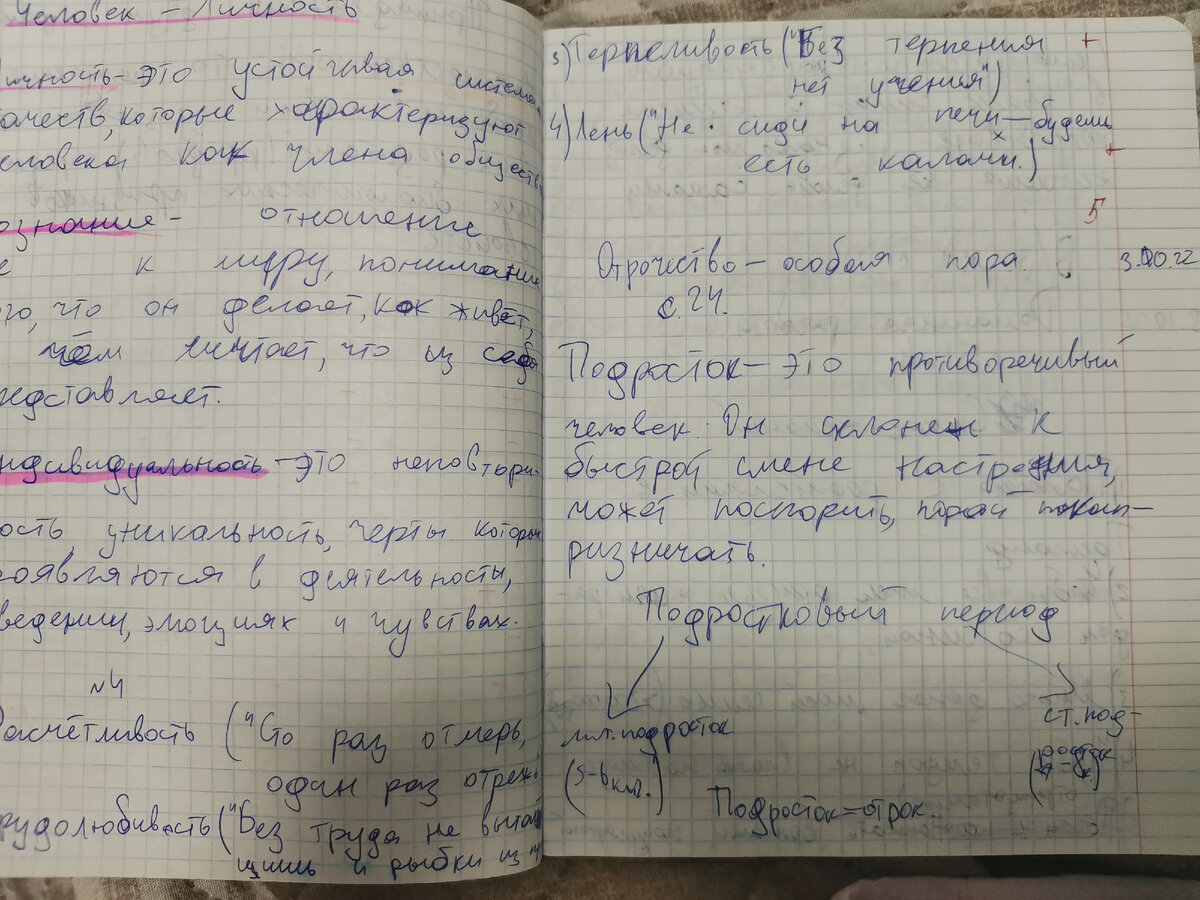 Человек – Личность
ичность – это устойчивая система
ачеств, которые характеризуют
еловека как члена обществ
ознание – отношение
е к миру, понимание
го, что он делает, как живёт,
чём мечтает, что из себя
едставляет.
ндивидуальность – это неповтори-
ость, уникальность, черты которой
роявляются в деятельности,
ведении, эмоциях и чувствах.
№4
Расчётливость ("Сто раз отмерь,
один раз отрежь
рудолюбивость ("Без труда не выта
щишь и рыбки из п
3) Терпеливость ("Без терпения +
нет учения")
4) Лень ("Не сиди на печи – будешь
есть калачи.) +
5
Отрочество – особая пора. 3.10.22
с. 24.
Подросток – это противоречивый
человек. Он склонен к
быстрой смене настроения,
может поспорить, порой покап-
ризничать.
Подростковый период
мл. подросток
(5-6 кл.)
ст. под-
росток
Подросток = отрок.